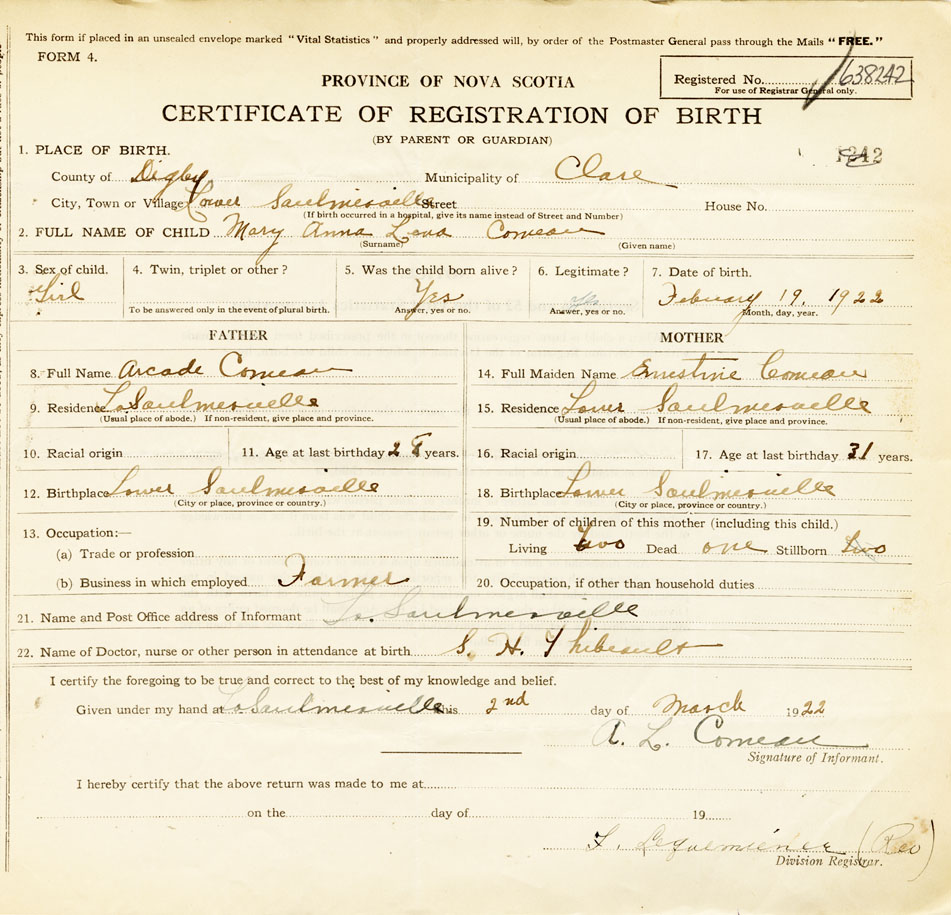 This form if placed in an unsealed envelope marked "Vital Statistics" and properly addressed will, by order of the Postmaster General pass through the Mails "FREE."
FORM 4.
PROVINCE OF NOVA SCOTIA
Registered No. 638242
For use of Registrar General only.
CERTIFICATE OF REGISTRATION OF BIRTH
(BY PARENT OR GUARDIAN)
1. PLACE OF BIRTH.
County of Digby Municipality of Clare
City, Town or Village Lower Saulniesville Street House No.
(If birth occurred in a hospital, give its name instead of Street and Number)
2. FULL NAME OF CHILD Mary Anna Lena Comeau
(Surname) (Given name)
3. Sex of child. 4. Twin, triplet or other? 5. Was the child born alive? 6. Legitimate? 7. Date of birth.
Girl Yes Yes February 19, 1922
To be answered only in the event of plural birth. Answer, yes or no. Answer, yes or no. Month, day, year.
FATHER MOTHER
8. Full Name Arcade Comeau 14. Full Maiden Name Ernestine Comeau
9. Residence Lo Saulniesville 15. Residence Lower Saulniesville
(Usual place of abode.) If non-resident, give place and province. (Usual place of abode.) If non-resident, give place and province.
10. Racial origin 11. Age at last birthday 28 years. 16. Racial origin 17. Age at last birthday 31 years.
12. Birthplace Lower Saulniesville 18. Birthplace Lower Saulniesville
(City or place, province or country.) (City or place, province or country.)
13. Occupation:— 19. Number of children of this mother (including this child.)
(a) Trade or profession Living two Dead one Stillborn two
(b) Business in which employed Farmer 20. Occupation, if other than household duties
21. Name and Post Office address of Informant Lo. Saulniesville
22. Name of Doctor, nurse or other person in attendance at birth S. H. Thibeault
I certify the foregoing to be true and correct to the best of my knowledge and belief.
Given under my hand at Lo Saulniesville this 2nd day of March 1922
A. L. Comeau
Signature of Informant.
I hereby certify that the above return was made to me at
on the day of 19
(Rev)
Division Registrar.